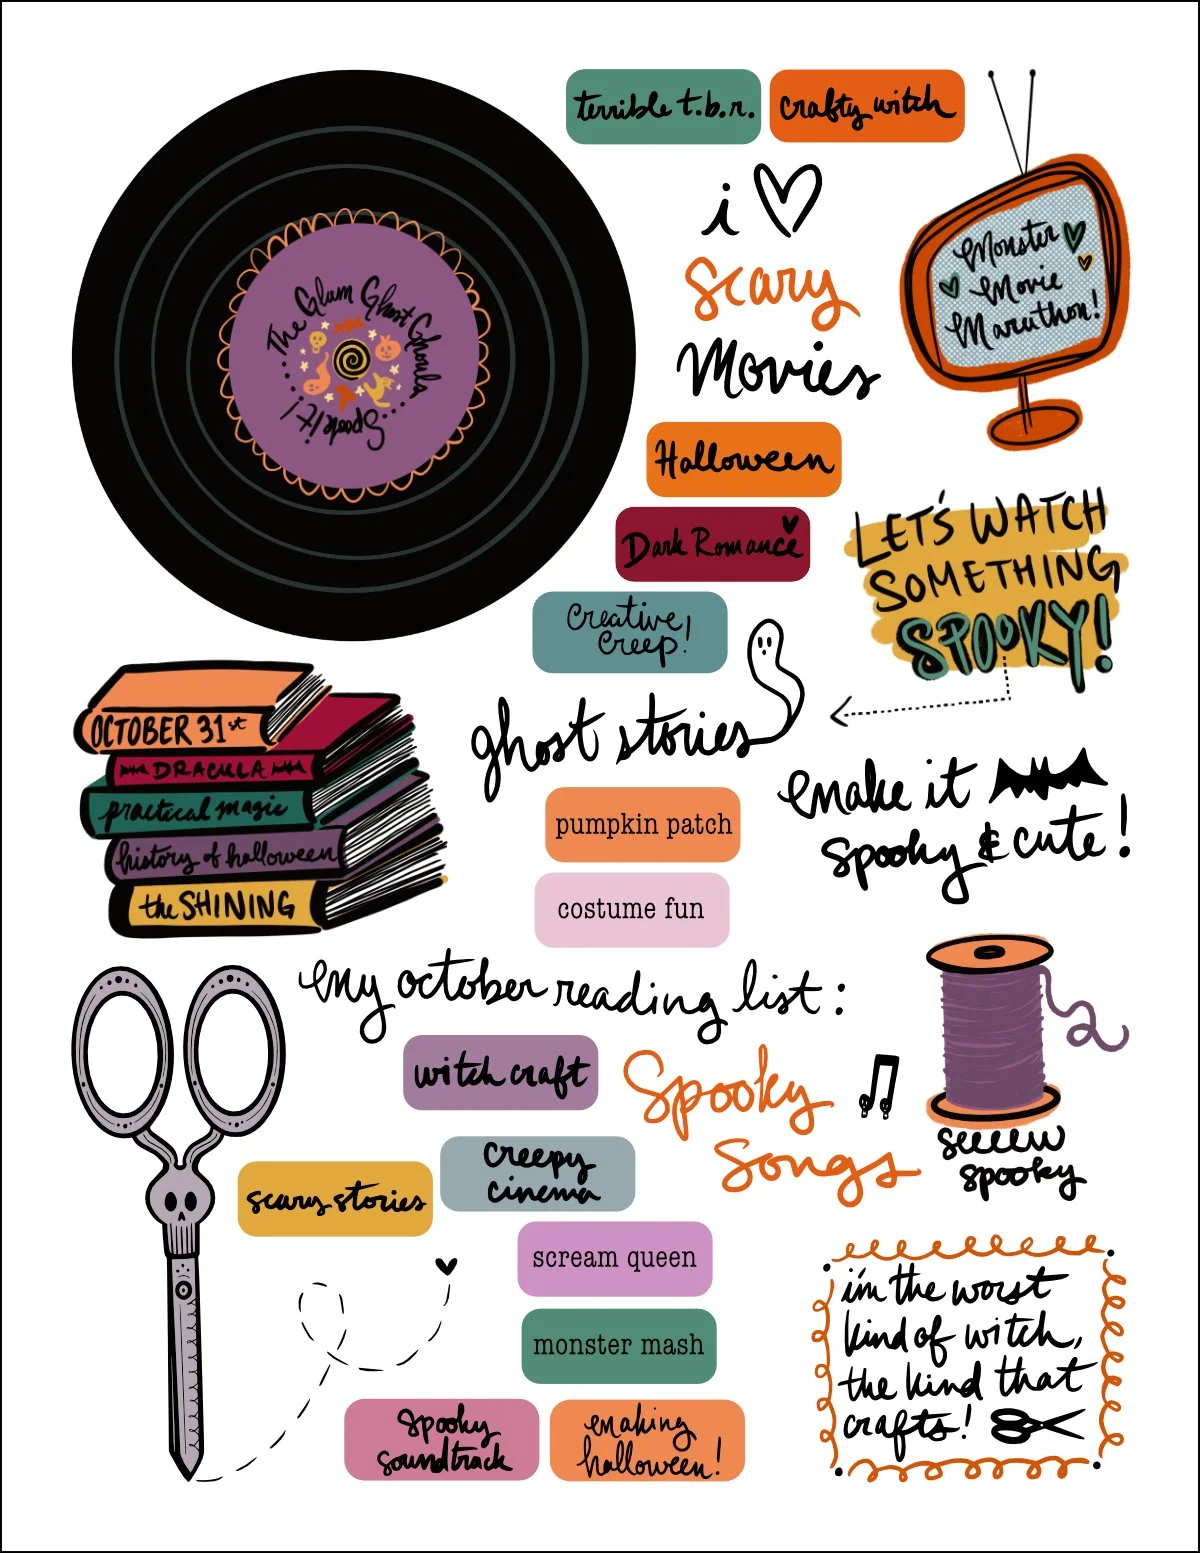 terrible t.b.r.
crafty witch
i
scary
Movies
Monster
Movie
Marathon!
The Glam Ghost Ghouls
Spook It!
Halloween
Dark Romance
Creative
Creep!
LET'S WATCH
SOMETHING
SPOOKY!
ghost stories
OCTOBER 31st
DRACULA
practical magic
history of halloween
the SHINING
pumpkin patch
costume fun
make it
spooky & cute!
my october reading list:
witch craft
Spooky
Songs
seeeew
spooky
scary stories
creepy
cinema
scream queen
monster mash
spooky
soundtrack
making
halloween!
i'm the worst
kind of witch,
the kind that
crafts!